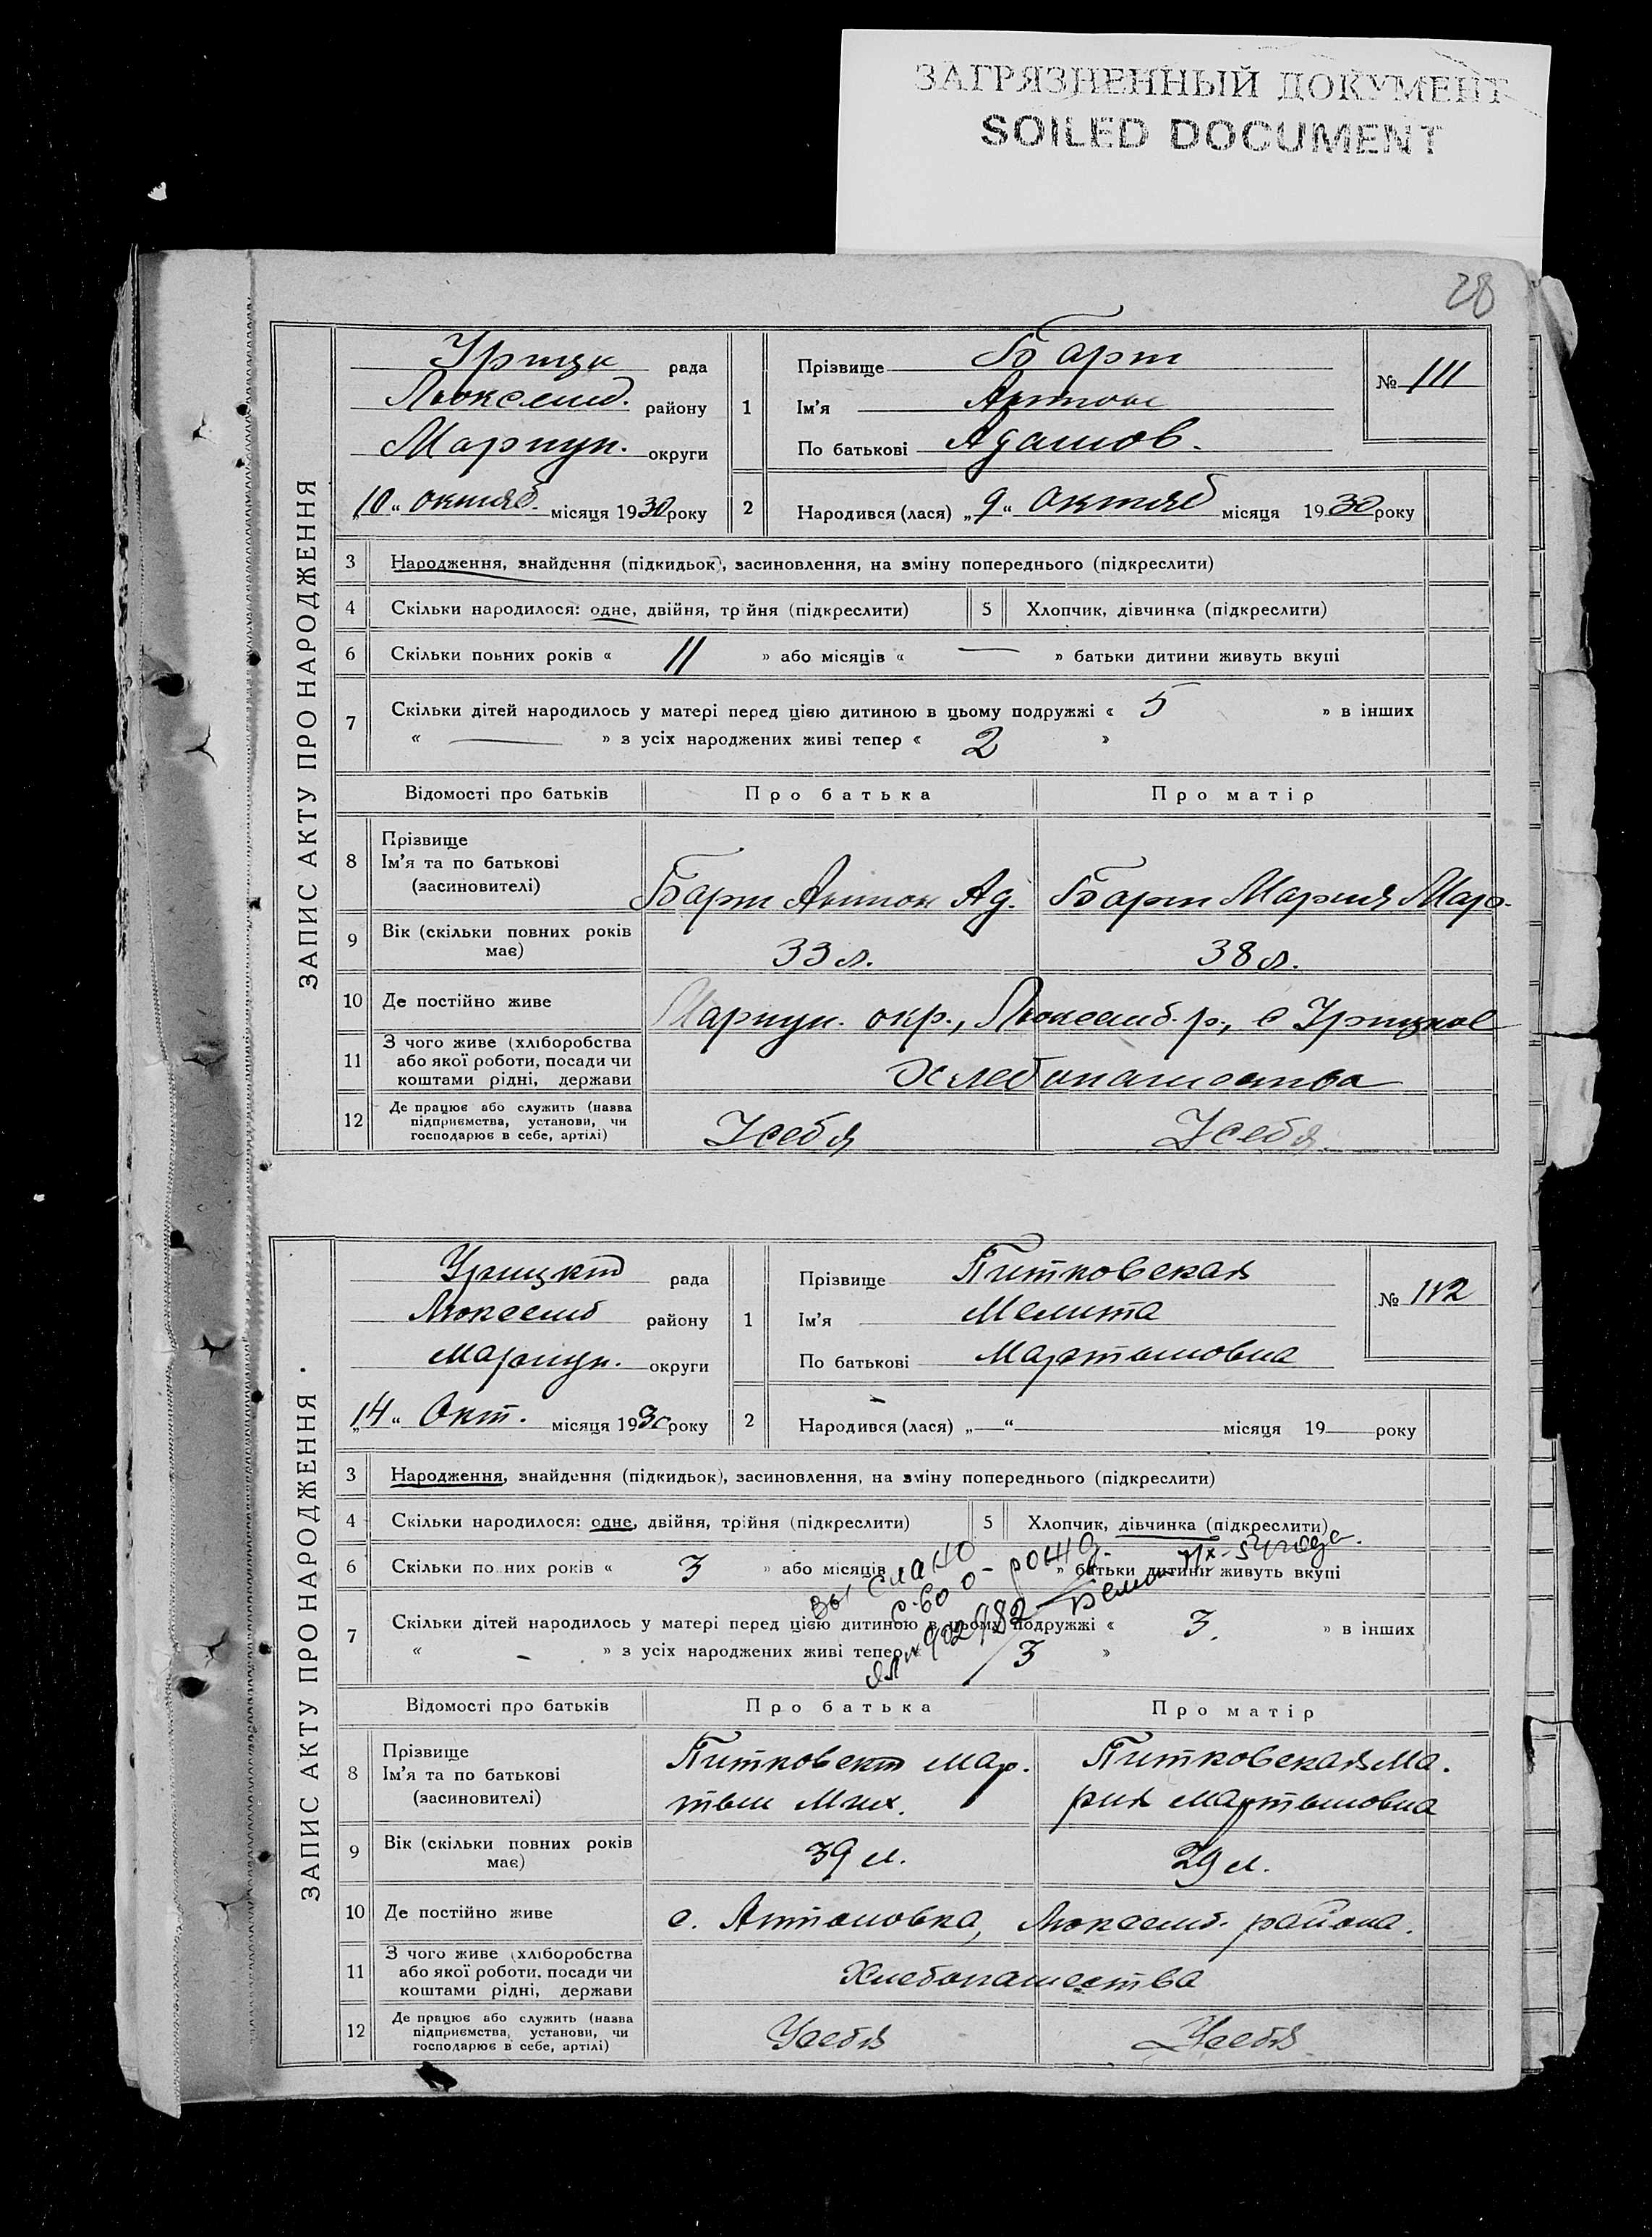 ЗАГРЯЗНЕННЫЙ ДОКУМЕНТ
SOILED DOCUMENT
28
ЗАПИС АКТУ ПРО НАРОДЖЕННЯ
Урицк рада
Люксемб. району
Мариуп. округи
„10“ октяб. місяця 1930 року
1
Прізвище Барт
Ім'я Антон
По батькові Адамов.
№ 111
2 Народився (лася) „9“ октяб місяця 1930 року
3 Народження, знайдення (підкидьок), засиновлення, на зміну попереднього (підкреслити)
4 Скільки народилося: одне, двійня, трійня (підкреслити) 5 Хлопчик, дівчинка (підкреслити)
6 Скільки повних років « 11 » або місяців « — » батьки дитини живуть вкупі
7 Скільки дітей народилось у матері перед цією дитиною в цьому подружжі « 5 » в інших
« — » з усіх народжених живі тепер « 2 »
Відомості про батьків Про батька Про матір
8 Прізвище
Ім'я та по батькові
(засиновителі)
Барт Антон Ад. Барт Мария Мар.
9 Вік (скільки повних років
має)
33 л. 38 л.
10 Де постійно живе Мариуп. окр., Люксемб. р., с Урицкое
11 З чого живе (хліборобства
або якої роботи, посади чи
коштами рідні, держави
Хлебопашества
12 Де працює або служить (назва
підприємства, установи, чи
господарює в себе, артілі)
У себя У себя
ЗАПИС АКТУ ПРО НАРОДЖЕННЯ
Урицкой рада
Люксемб району
Мариуп. округи
„14“ Окт. місяця 1930 року
1
Прізвище Питковская
Ім'я Мелита
По батькові Мартыновна
№ 112
2 Народився (лася) „—“ місяця 19 року
3 Народження, знайдення (підкидьок), засиновлення, на зміну попереднього (підкреслити)
4 Скільки народилося: одне, двійня, трійня (підкреслити) 5 Хлопчик, дівчинка (підкреслити)
6 Скільки повних років « 3 » або місяців » батьки дитини живуть вкупі
выслано
с-во о рожд.
7 Скільки дітей народилось у матері перед цією дитиною в цьому подружжі « 3. » в інших
« - » з усіх народжених живі тепер « 3 »
Відомості про батьків Про батька Про матір
8 Прізвище
Ім'я та по батькові
(засиновителі)
Питковский Мар. Питковская Ма.
тын Мих. рия Мартыновна
9 Вік (скільки повних років
має)
39 л. 29 л.
10 Де постійно живе с. Антоновка, Люксемб. района.
11 З чого живе (хліборобства
або якої роботи, посади чи
коштами рідні, держави
Хлебопашества
12 Де працює або служить (назва
підприємства, установи, чи
господарює в себе, артілі)
У себя У себя